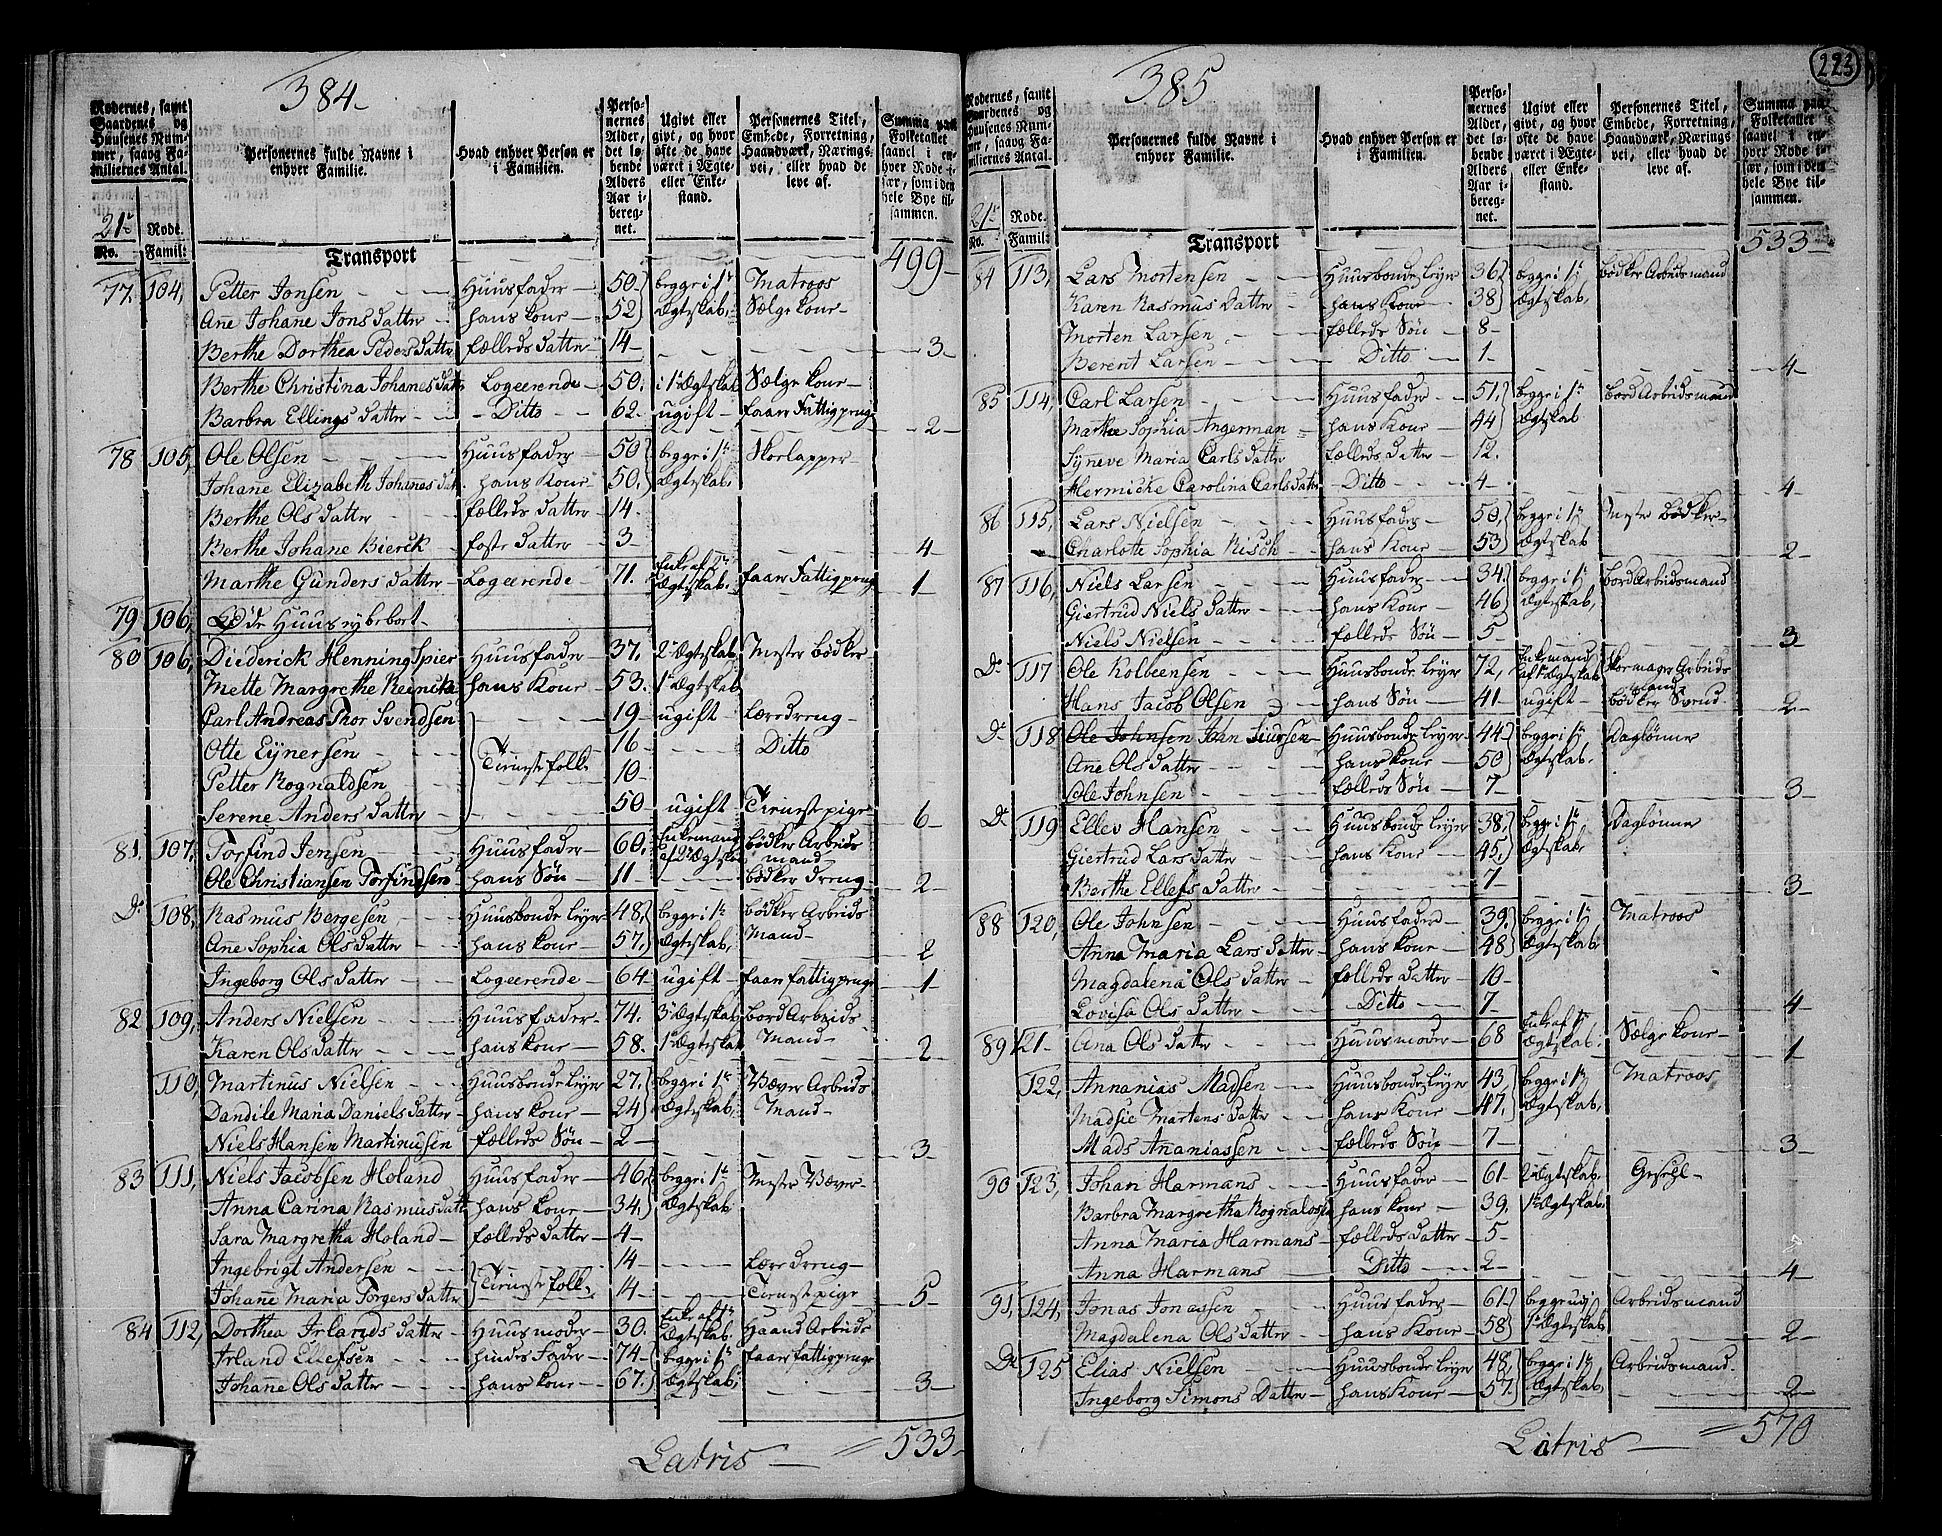 384
Rodernes, samt Gaardenes og Huusenes Nummer, saavg Familiernes Antal.
Personernes fulde Navne i enhver Familie.
Hvad enhver Person er i Familien.
Personernes Alder, det løbende Alders Aar iberegnet.
Ugivt eller givt, og hvor ofte de have været i Ægte- eller Enkestand.
Personernes Titel, Embede, Forretning, Haandværk, Næringsvei, eller hvad de leve af.
Summa paa Folketallet saavel i enhver Rode især, som i den hele Bye tilsammen.
21de Rode.
No. Famil:
Transport 499
77 104, Petter Jonsen Huusfader 50 begge i 1te Matroos
Ane Johane Jons datter hans kone 52 Ægteskab Sælge kone
Berthe Dorthea Peders datter fælleds datter 14 3
Berthe Christina Johanes datter Logeerende 50, i 1te Ægteskab Sælge kone
Barbra Ellings datter Ditto 62 ugift faar Fattigpenge 2
78 105, Ole Olsen Huusfader 50 begge i 1te Skoelapper
Johane Elizabeth Johanes dat. hans Kone 50, Ægteskab
Berthe Ols datter fælleds datter 14
Berthe Johane Bierck foster datter 3 4
Marthe Gunders datter Logeerende 71. Enke af Ægteskab faar Fattigpenge 1
79 106, Øde Huus
80 106, Diederick Henning Spier Huusfader 37. 2de Ægteskab Mester Bødker
Mette Margrethe Reinike hans Kone 53. 1te Ægteskab
Carl Andreas Thor Svendsen 19 ugift Læredreng
Otte Eynersen Tieneste folk 16 Ditto
Petter Rognaldsen 10
Serene Anders datter 50 ugift Tienestepige 6
81, 107, Torfind Jensen Huusfader 60, Enkemand af 2de Ægteskab bødker Arbeids mand
Ole Christiansen Torfindsen hans Søn 11 bødker dreng 2
Do 108, Rasmus Bergesen Huusbonde leyer 48, begge i 1te bødker Arbeids
Ane Sophia Ols datter hans kone 57, Ægteskab, Mand 2
Ingeborg Ols datter Logeerende 64 ugift faar fattigpenge 1
82 109, Anders Nielsen Huusfader 74. 3de Ægteskab bord Arbeids
Karen Ols datter hans kone 58. 1te Ægteskab Mand 2
110, Martinus Nielsen Huusbonde leyer 27. begge i 1te Væver Arbeids
Dandile Maria Daniels datter hans kone 24 Ægteskab, Mand
Niels Hansen Martinusen fælleds Søn 2 3
83 111, Niels Jacobsen Holand Huusfader 46, begge i 1te Mester Væver
Anna Carina Rasmusdatt hans kone 34, Ægteskab
Sara Margretha Holand fælleds datter 4
Ingebrigt Andersen Tieneste folk 14 Læredreng
Johane Maria Torgers datter 14 Tienestepige 5
84 112, Dorthea Irlands datter Huusmoder 30. Enke af 1te Ægteskab Haand Arbeide
Irland Ellefsen hindes Fader 74 begge i 1te faar fattigpenge
Johane Ols datter hans kone 67. Ægteskab 3
Latris 533
385
223
Rodernes, samt Gaardenes og Huusenes Nummer, saavg Familiernes Antal.
Personernes fulde Navne i enhver Familie.
Hvad enhver Person er i Familien.
Personernes Alder, det løbende Alders Aar iberegnet.
Ugivt eller givt, og hvor ofte de have været i Ægte- eller Enkestand.
Personernes Titel, Embede, Forretning, Haandværk, Næringsvei, eller hvad de leve af.
Summa paa Folketallet saavel i enhver Rode især, som i den hele Bye tilsammen.
21de Rode.
No. Famil:
Transport 533
84 113, Lars Mortensen Huusbonde leyer 36 begge i 1te Bødker Arbeidsmand
Karen Rasmus datter hans Kone 38 Ægteskab,
Morten Larsen fælleds Søn 8
Berent Larsen Ditto 1 4
85 114, Carl Larsen Huusfader 51, begge i 1te bord Arbeidsmand
Marthe Sophia Angerman hans Kone 44 Ægteskab
Syneve Maria Carls datter fælleds datter 12.
Hermicke Carolina Carls datter Ditto 4 4
86 115, Lars Nielsen Huusfader 50, begge i 1te Mester bødker
Charlotte Sophia Risch hans Kone 53 Ægteskab 2
87 116, Niels Larsen Huusfader 34. begge i 1te bord Arbeidsmand
Giertrud Niels datter hans Kone 46 Ægteskab,
Niels Nielsen fælleds Søn 5 3
Do 117 Ole Kolbeensen Huusbonde leyer 72, Enkemand af 1te Ægteskab Skomager Arbeids mand
Hans Jacob Olsen hans Søn 41 ugift bødker Svend 2
Do 118 Ole Johnsen John Siursen Huusbonde leyer 44 begge i 1te Daglønner
Ane Ols datter hans kone 50 Ægteskab.
Ole Johnsen fælleds Søn 7 3
Do 119 Ellev Hansen Huusbonde leyer 38, begge i 1te Daglønner
Giertrud Lars datter hans Kone 45. Ægteskab
Berthe Ellefs datter 7 3
88 120, Ole Johnsen Huusfader 39. begge i 1te Matroos
Anna Maria Lars datter hans kone 48 Ægteskab
Magdalena Ols datter fælleds datter 10
Lovisa Ols datter Ditto 7 4
89 121 Ana Ols datter Huusmoder 68 Enke af 1te Ægteskab. Sælge kone 1
122, Annanias Madsen Huusbonde leyer 43, begge i 1te Matroos
Madsie Martens datter hans Kone 47. Ægteskab,
Mads Ananiassen fælleds Søn 7 3
90 123, Johan Harmans Huusfader 61 2de Ægteskab.
Barbra Margretha Rognalds hans kone 39. 1te Ægteskab
Anna Maria Harmans fælleds datter 5
Anna Harmans Ditto 2 4
91, 124, Jonas Jonassen Huusfader 61 begge udi Arbeidsmand
Magdalena Ols datter hans Kone 58 1te Ægteskab 2
Do 125 Elias Nielsen Huusbonde leyer 48, begge i 1te Arbeidsmand.
Ingeborg Simons datter hans Kone 57. Ægteskab, 2
Latris 570